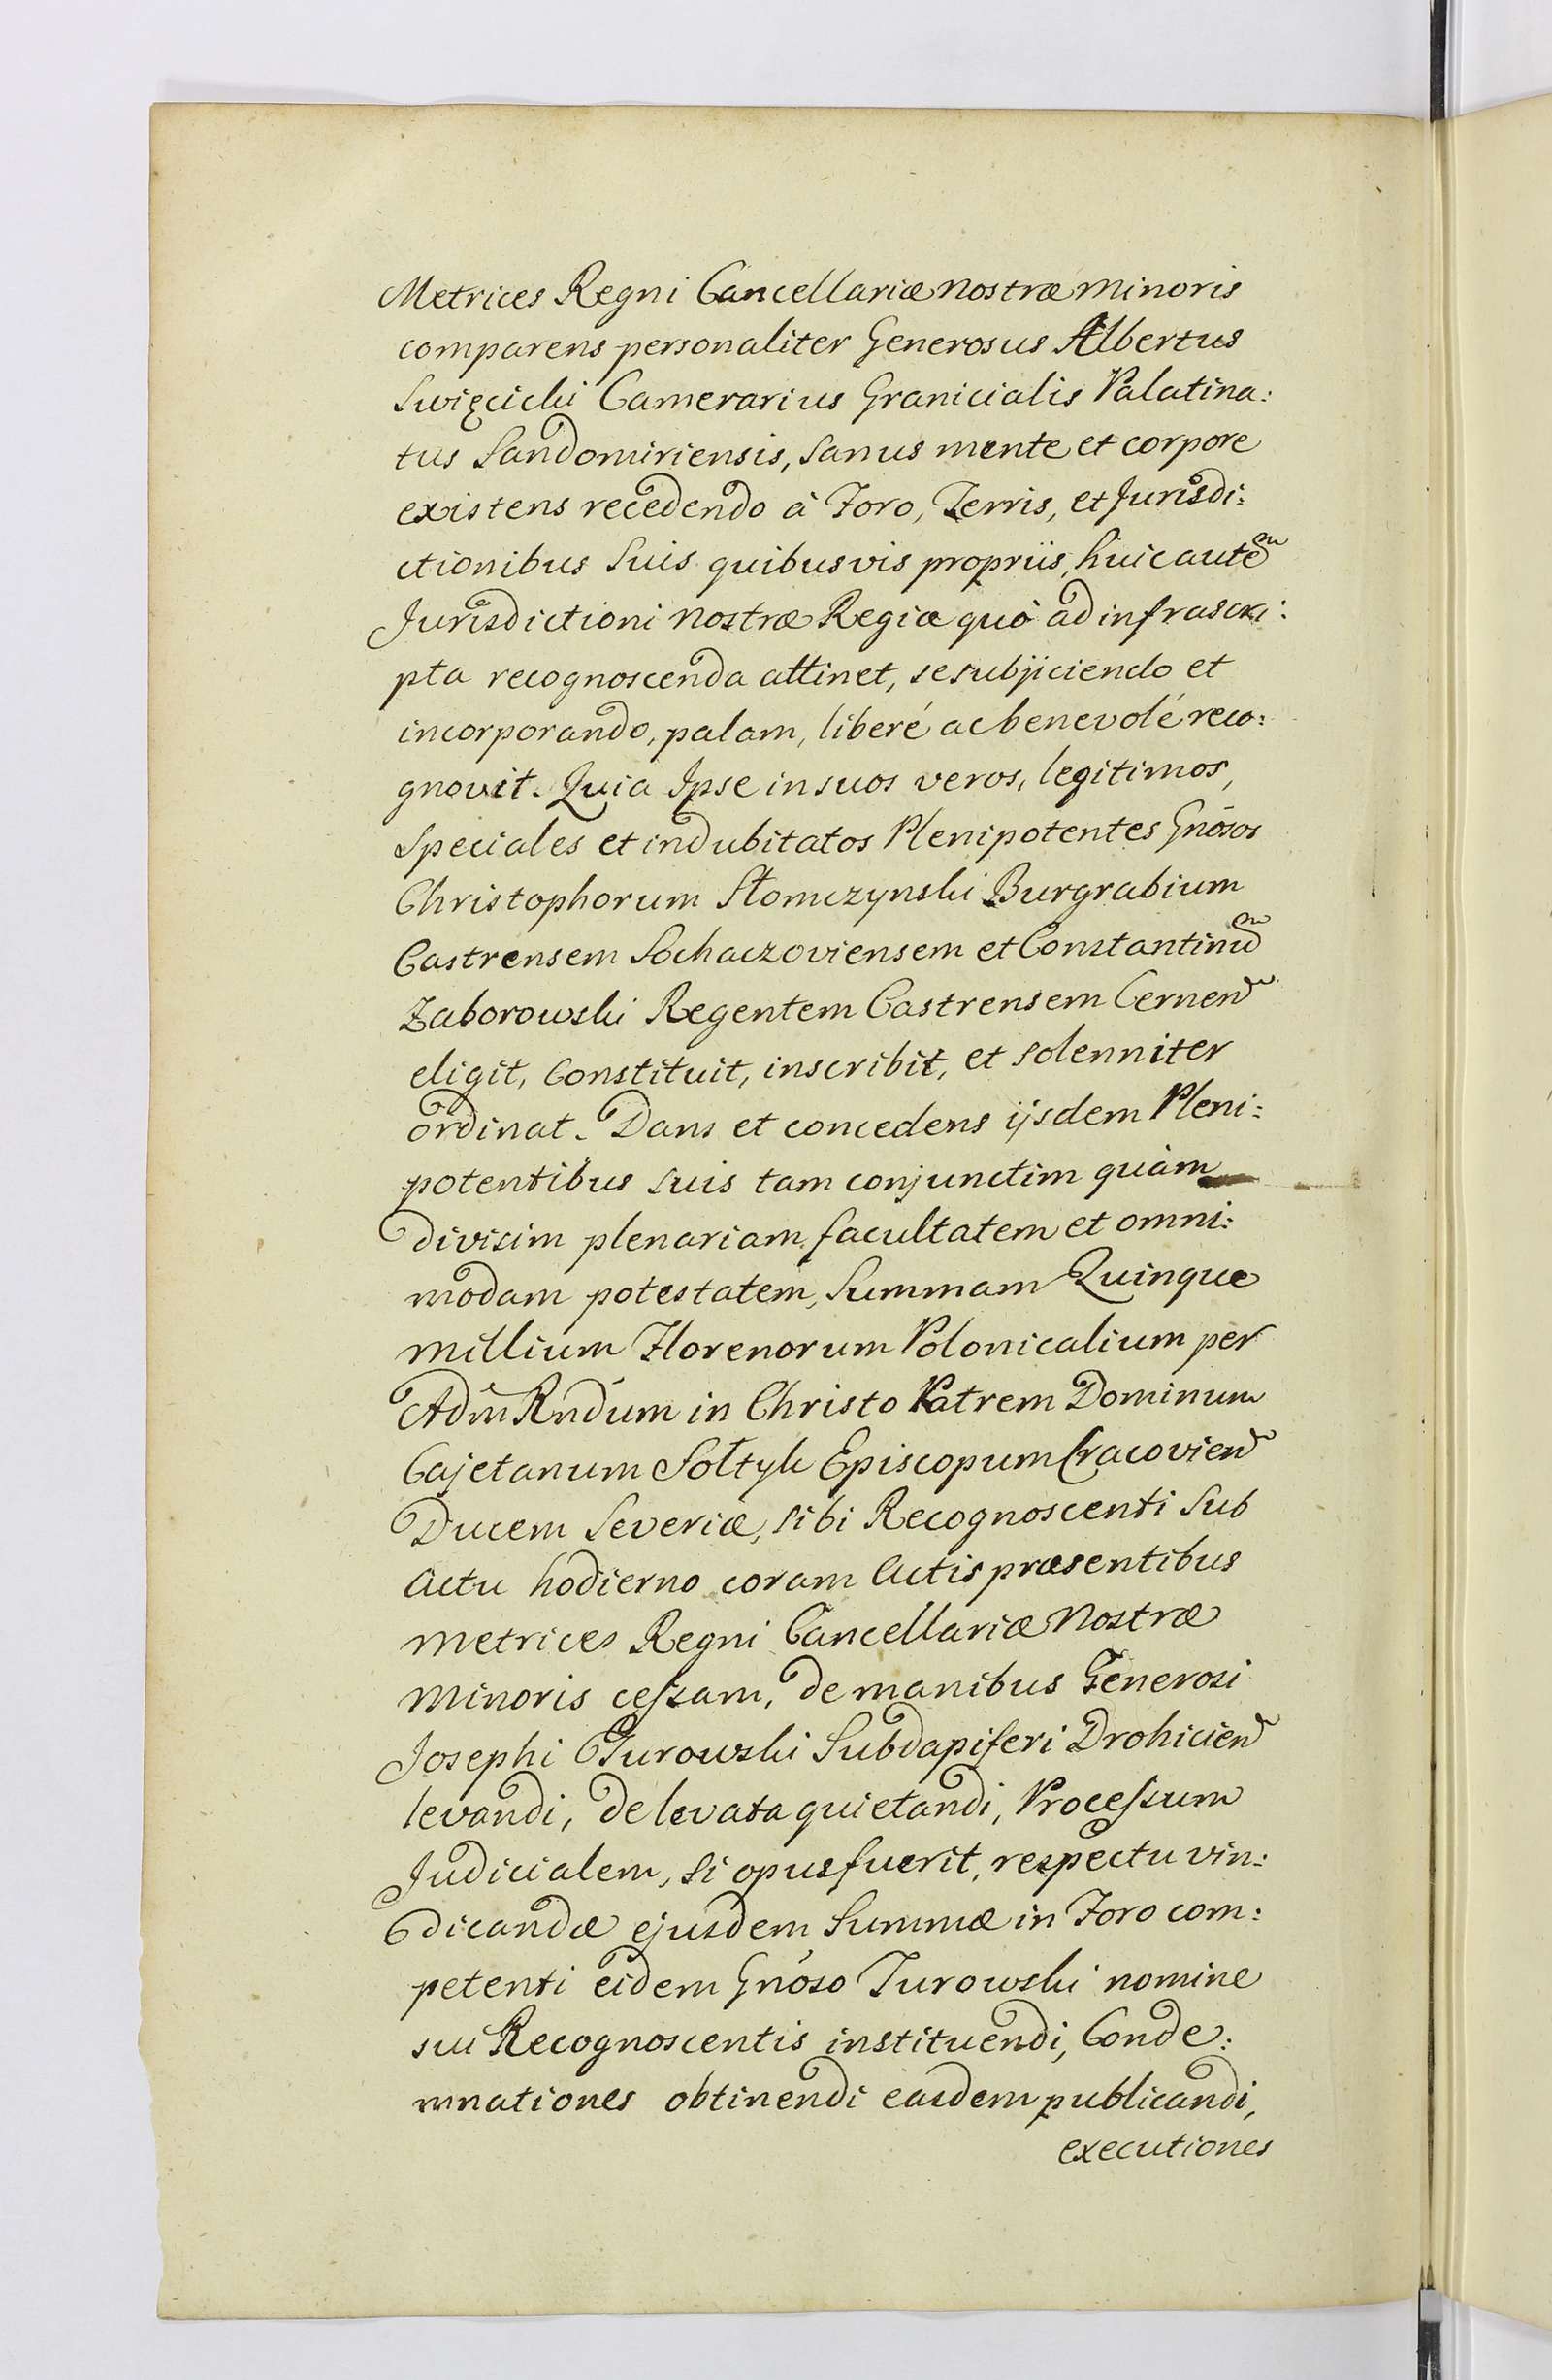 Metrices Regni Cancellariæ Nostræ Minoris
comparens personaliter Generosus Albertus
Swięcicki Camerarius Granicialis Palatina:
tus Sandomiriensis, Sanus mente et corpore
existens recedendo à Foro, Terris, et Jurisdi:
ctionibus Suis quibusvis propriis, huic autẽ
Jurisdictioni Nostræ Regiæ quò ad infrascri:
pta recognoscenda attinet, se subjiciendo et
incorporando, palam, liberé ac benevolé reco:
gnovit. Quia Ipse in suos veros, legitimos,
Speciales et indubitatos Plenipotentes Gnõsos
Christophorum Słomczynski Burgrabium
Castrensem Sochaczoviensem et Constantinũ
Zaborowski Regentem Castrensem Cernen̄
eligit, Constituit, inscribit, et solenniter
ordinat. Dans et concedens ijsdem Pleni:
potentibus suis tam conjunctim quàm
divisim plenariam facultatem et omni:
modam potestatem, Summam Quinque
Millium Florenorum Polonicalium per
Adm̃ Rndũm in Christo Patrem Dominum
Cajetanum Sołtyk Episcopum Cracovien̄
Ducem Severiæ, sibi Recognoscenti Sub
Actu hodierno coram Actis præsentibus
Metrices Regni Cancellariæ Nostræ
Minoris cessam, de manibus Generosi
Josephi Turowski Subdapiferi Drohicien̄
levandi, de levata quietandi, Processum
Judicialem, si opus fuerit, respectu vin:
dicandæ ejusdem Summæ in Foro com:
petenti eidem Gnõso Turowski nomine
sui Recognoscentis instituendi, Conde:
mnationes obtinendi easdem publicandi,
executiones